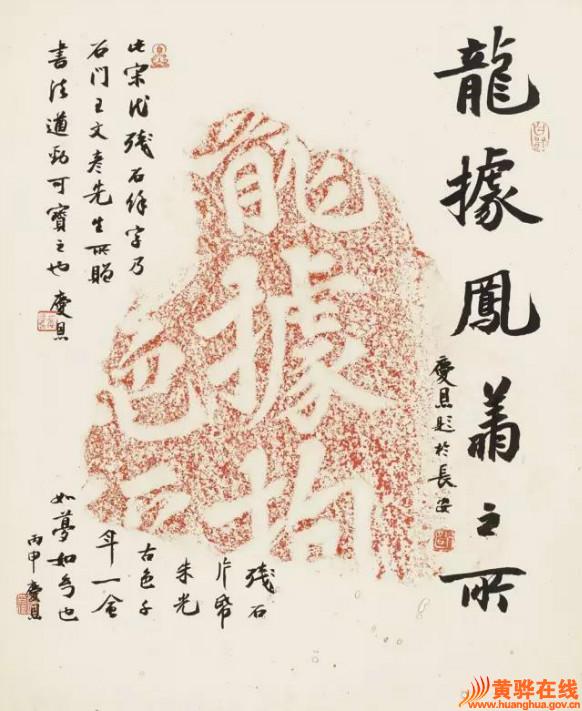 龍據鳳翥之所
慶恩題於長安
此宋代殘石餘字乃
石门王文彥先生所贈
書法遒勁可寶之也 慶恩
據
色
殘石
朱光
古色千
年一
如夢如幻也
丙申 慶恩
黄骅在线
www.huanghua.gov.cn